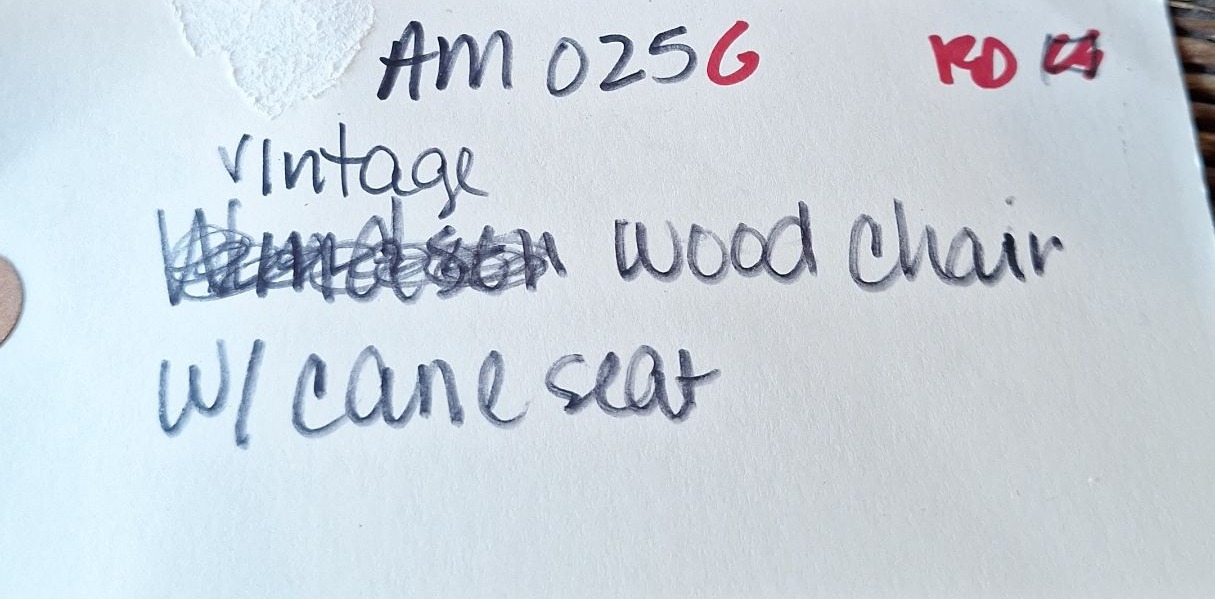 AM 0256 KD
vintage
wood chair
w/ cane seat